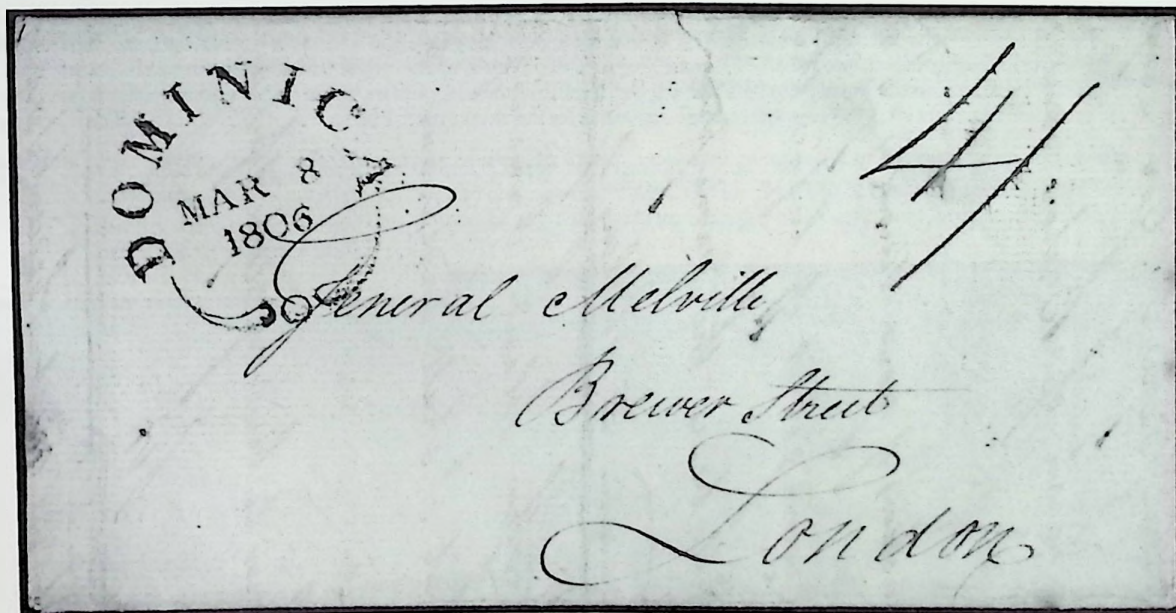 DOMINICA
MAR 8
1806
4/
General Melville
Brewer Street
London